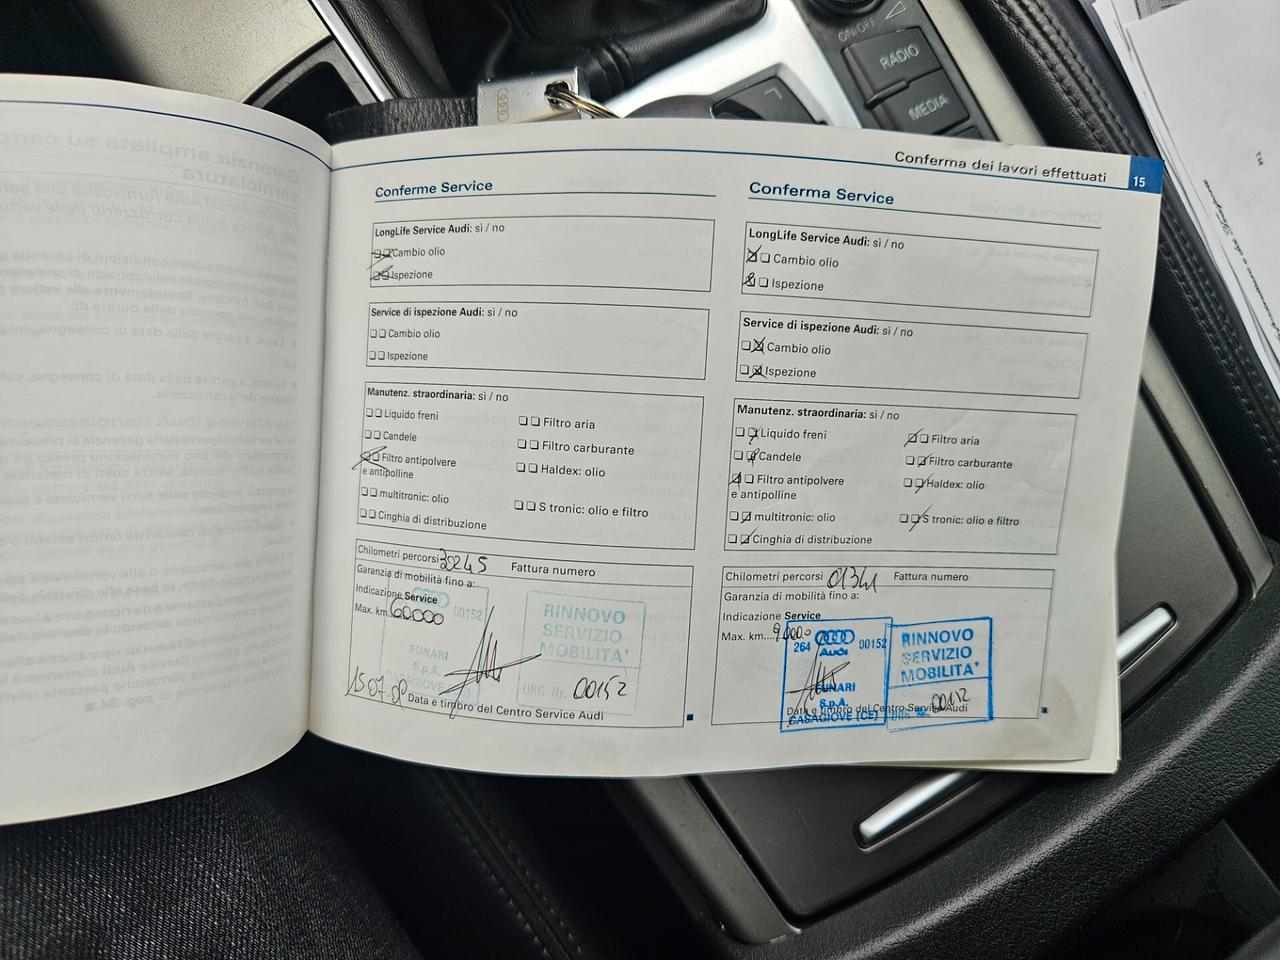 ON/OFF
RADIO
MEDIA
Conferma dei lavori effettuati 15
Conferme Service
LongLife Service Audi: sì / no
Cambio olio
Ispezione
Service di ispezione Audi: sì / no
Cambio olio
Ispezione
Manutenz. straordinaria: sì / no
Liquido freni
Filtro aria
Candele
Filtro carburante
Filtro antipolvere
e antipolline
Haldex: olio
multitronic: olio
S tronic: olio e filtro
Cinghia di distribuzione
Chilometri percorsi 30245 Fattura numero
Garanzia di mobilità fino a:
Indicazione Service
Max. km... 60000
00152
FUNARI
S.p.A.
CASAGIOVE (CE)
RINNOVO
SERVIZIO
MOBILITA'
ORG. Nr. 00152
15 07
Data e timbro del Centro Service Audi
Conferma Service
LongLife Service Audi: sì / no
Cambio olio
Ispezione
Service di ispezione Audi: sì / no
Cambio olio
Ispezione
Manutenz. straordinaria: sì / no
Liquido freni
Filtro aria
Candele
Filtro carburante
Filtro antipolvere
e antipolline
Haldex: olio
multitronic: olio
S tronic: olio e filtro
Cinghia di distribuzione
Chilometri percorsi Fattura numero
Garanzia di mobilità fino a:
Indicazione Service
Max. km....
264 Audi 00152
FUNARI
S.p.A.
CASAGIOVE (CE)
RINNOVO
SERVIZIO
MOBILITA'
ORG. Nr.
Data e timbro del Centro Service Audi